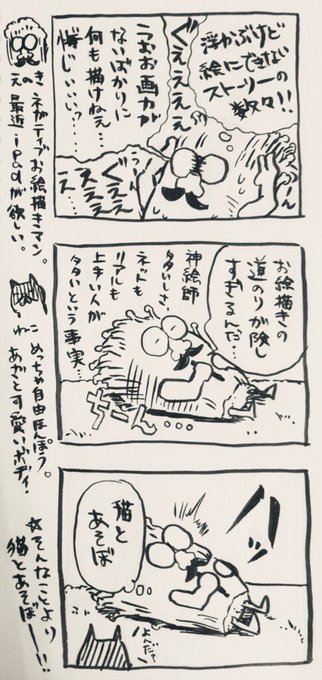 浮かぶけど
絵にできない
ストーリーの
数々!!
ぐえええええ
うおお画力が
ないばかりに
何も描けねえ…
お絵描きの
道のりが険し
すぎるんだ…
神絵師
多いしさ、
ネットも
リアルも
上手い人が
多いという事実…
ずーん…
ハッ
猫と
あそぼ
よんだ?
えのき
ネガティブお絵描きマン。
最近iPadが欲しい。
ねこ
めっちゃ自由ほんぽう。
あざと可愛いボディ。
☆そんなことより
猫とあそぼー!!